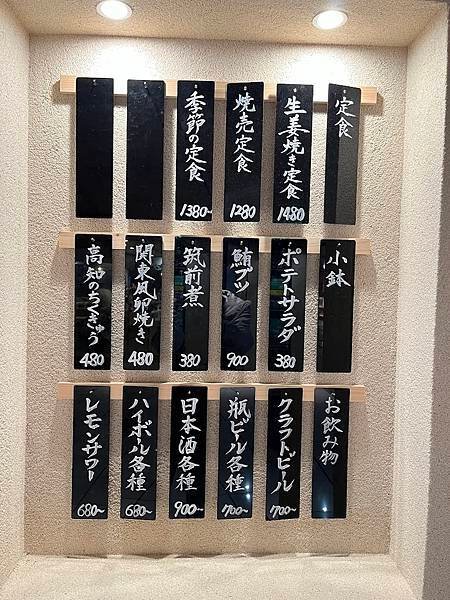 定食
生姜焼き定食
1480
焼売定食
1280
季節の定食
1380~
小鉢
ポテトサラダ
380
鮪ブツ
900
筑前煮
380
関東風卵焼き
480
高知のちくきゅう
480
お飲み物
クラフトビール
700~
瓶ビール各種
700~
日本酒各種
900~
ハイボール各種
680~
レモンサワー
680~